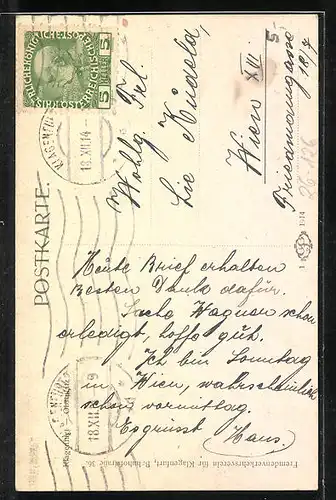 POSTKARTE.
KAISERLICHE KÖNIGLICHE OST.
REICHISCHE POST
5 HELLER 5
KLAGENFURT
18.XII.14
Wohlg. Frl.
Lie Kudela,
Wien XIII
5
Friedmanngasse
18/7
26-126
1914
Heute Brief erhalten
besten Dank dafür.
Sache Wagner schon
erledigt, hoffe gut.
Ich bin Sonntag
in Wien, wahrscheinlich
schon vormittag.
Es grüsst Hans.
18.XII.14
Fremdenverkehrsverein für Klagenfurt, Bahnhofstraße